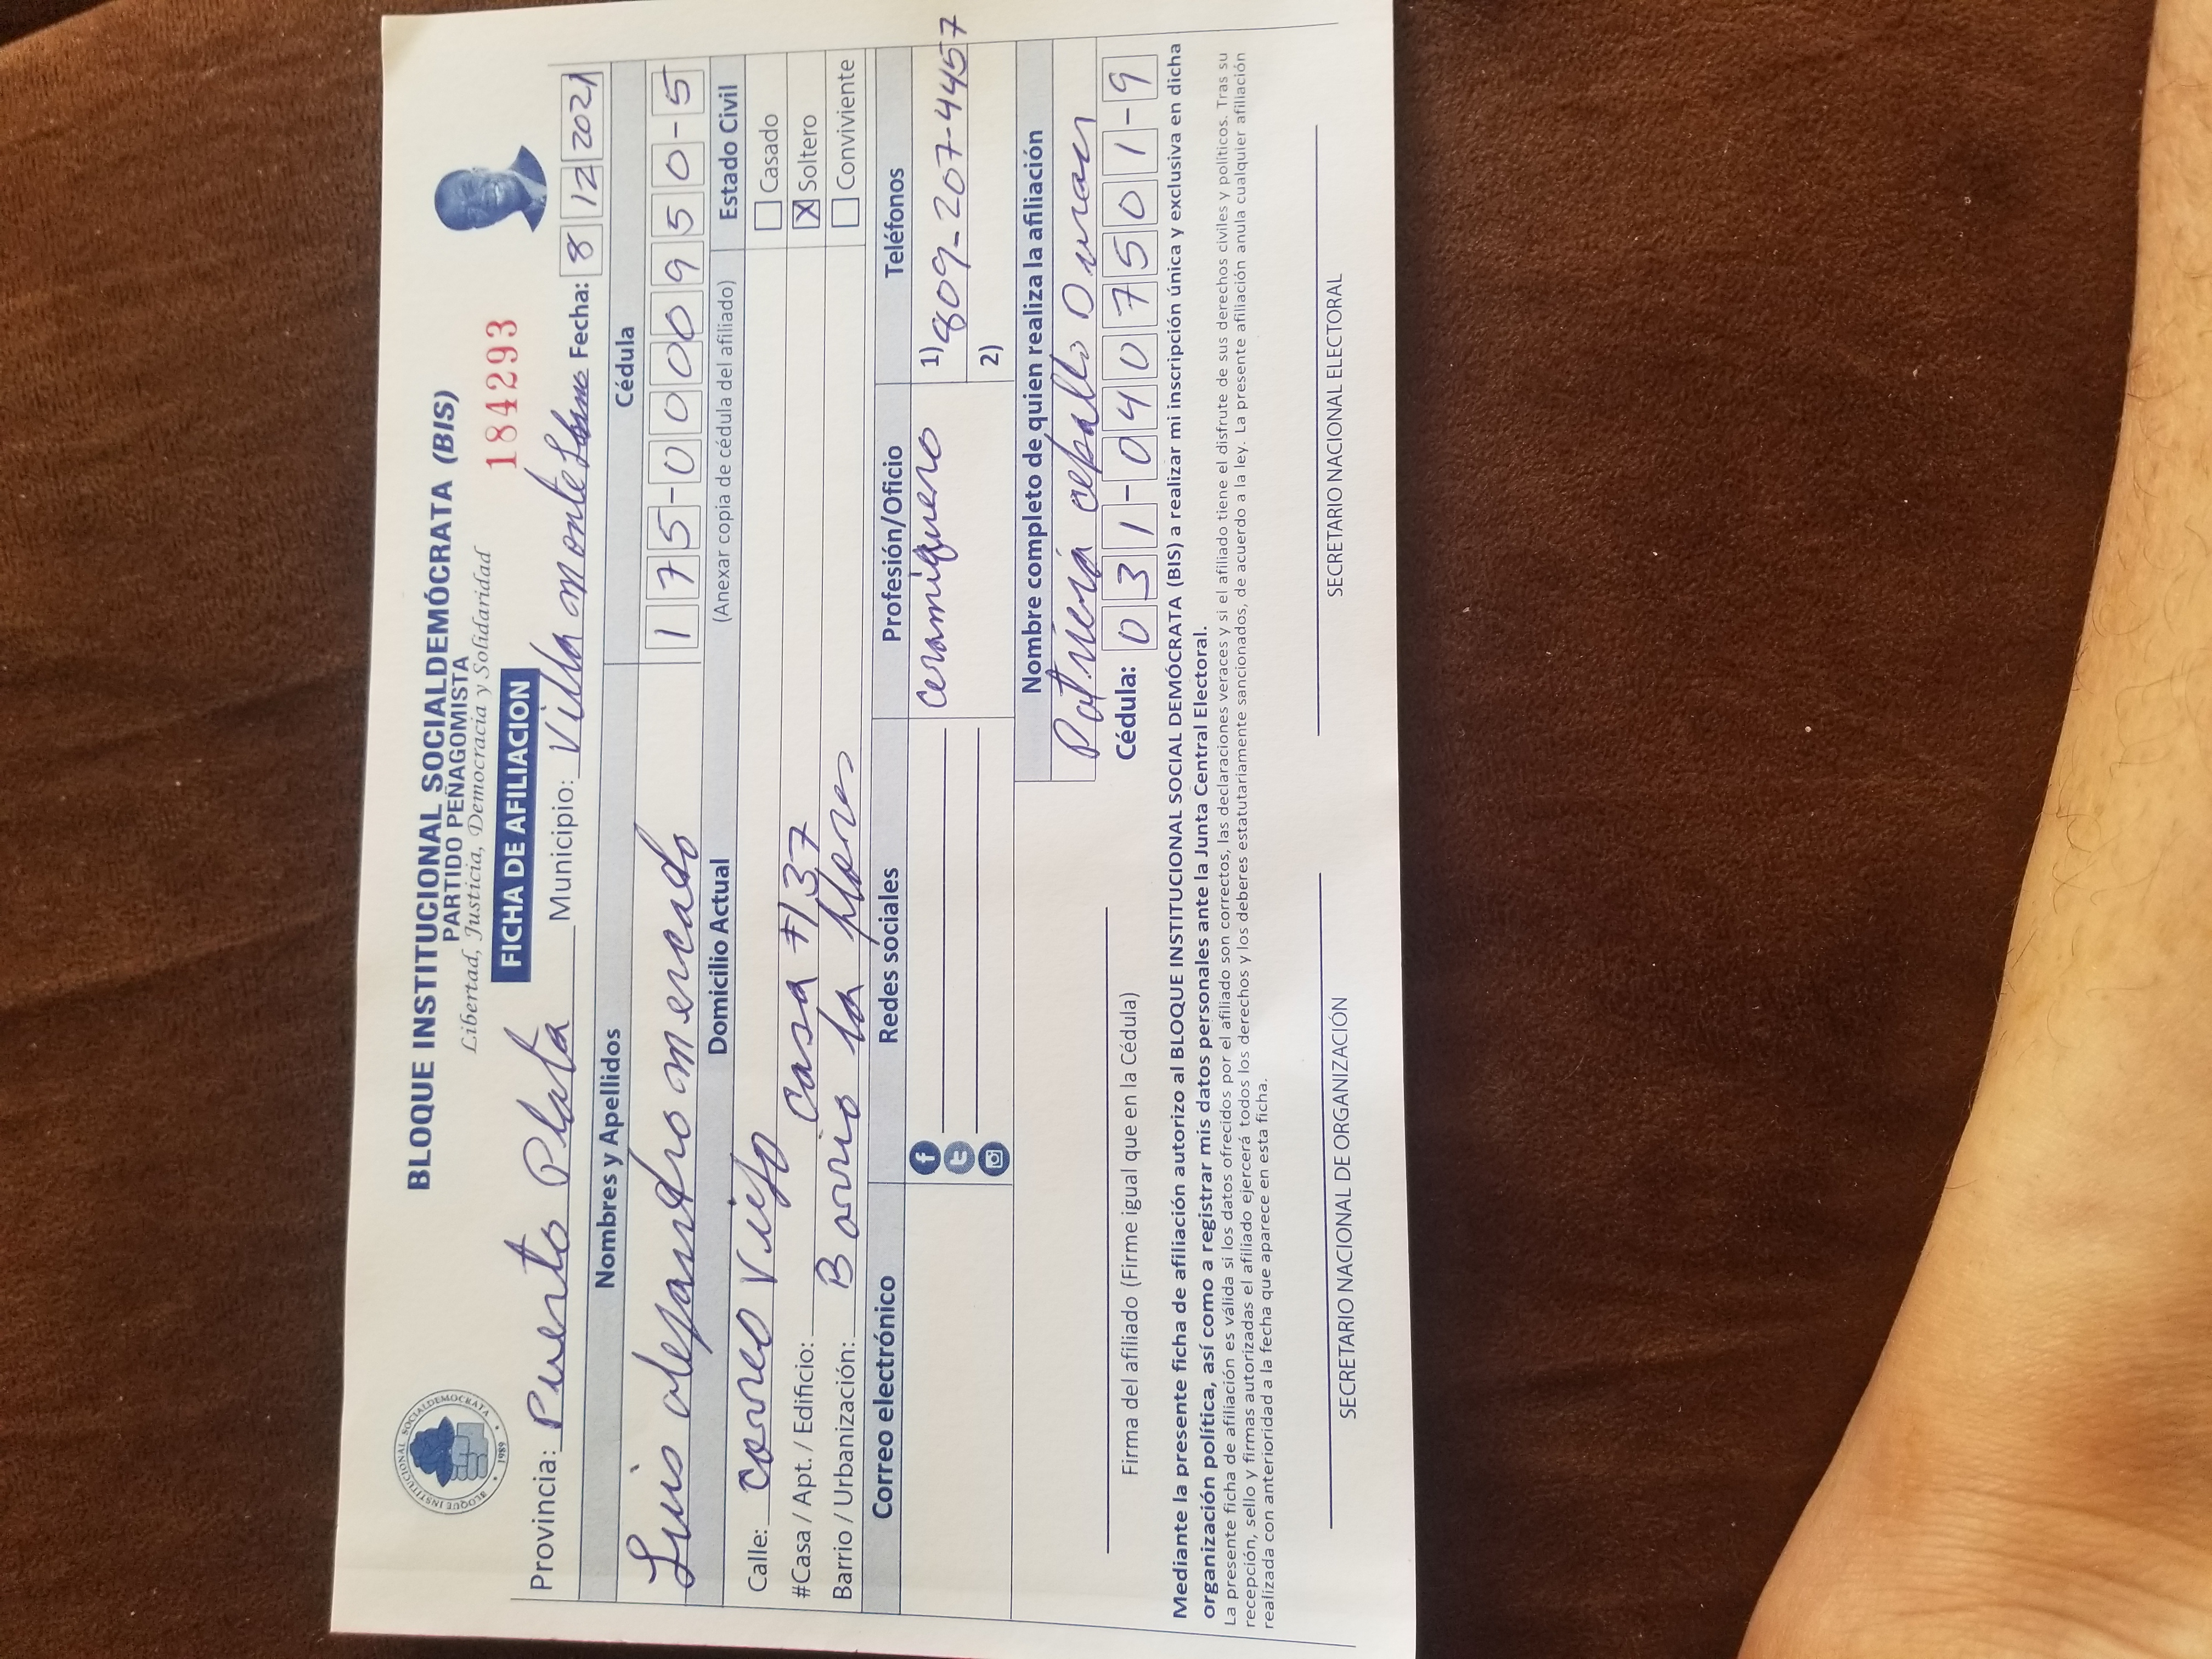 BLOQUE INSTITUCIONAL SOCIALDEMÓCRATA (BIS)
PARTIDO PEÑAGOMISTA
Libertad, Justicia, Democracia y Solidaridad
BLOQUE INSTITUCIONAL SOCIALDEMOCRATA
1989
FICHA DE AFILIACION
184293
Provincia: Puerto Plata Municipio: Villa Monte Fecha: 8 12 2021
Nombres y Apellidos Cédula
Luis alejandro mercado 175-0000950-5
Domicilio Actual (Anexar copia de cédula del afiliado) Estado Civil
Calle: correo Viejo Casado
#Casa / Apt. / Edificio: Casa #137 X Soltero
Barrio / Urbanización: Barrio la flores Conviviente
Correo electrónico Redes sociales Profesión/Oficio Teléfonos
Ceramiquero 1) 809-207-4457
2)
Nombre completo de quien realiza la afiliación
Patricia ceballo Duran
Cédula: 031-0407501-9
Firma del afiliado (Firme igual que en la Cédula)
Mediante la presente ficha de afiliación autorizo al BLOQUE INSTITUCIONAL SOCIAL DEMÓCRATA (BIS) a realizar mi inscripción única y exclusiva en dicha
organización política, así como a registrar mis datos personales ante la Junta Central Electoral.
La presente ficha de afiliación es válida si los datos ofrecidos por el afiliado son correctos, las declaraciones veraces y si el afiliado tiene el disfrute de sus derechos civiles y políticos. Tras su
recepción, sello y firmas autorizadas el afiliado ejercerá todos los derechos y los deberes estatutariamente sancionados, de acuerdo a la ley. La presente afiliación anula cualquier afiliación
realizada con anterioridad a la fecha que aparece en esta ficha.
SECRETARIO NACIONAL DE ORGANIZACIÓN SECRETARIO NACIONAL ELECTORAL